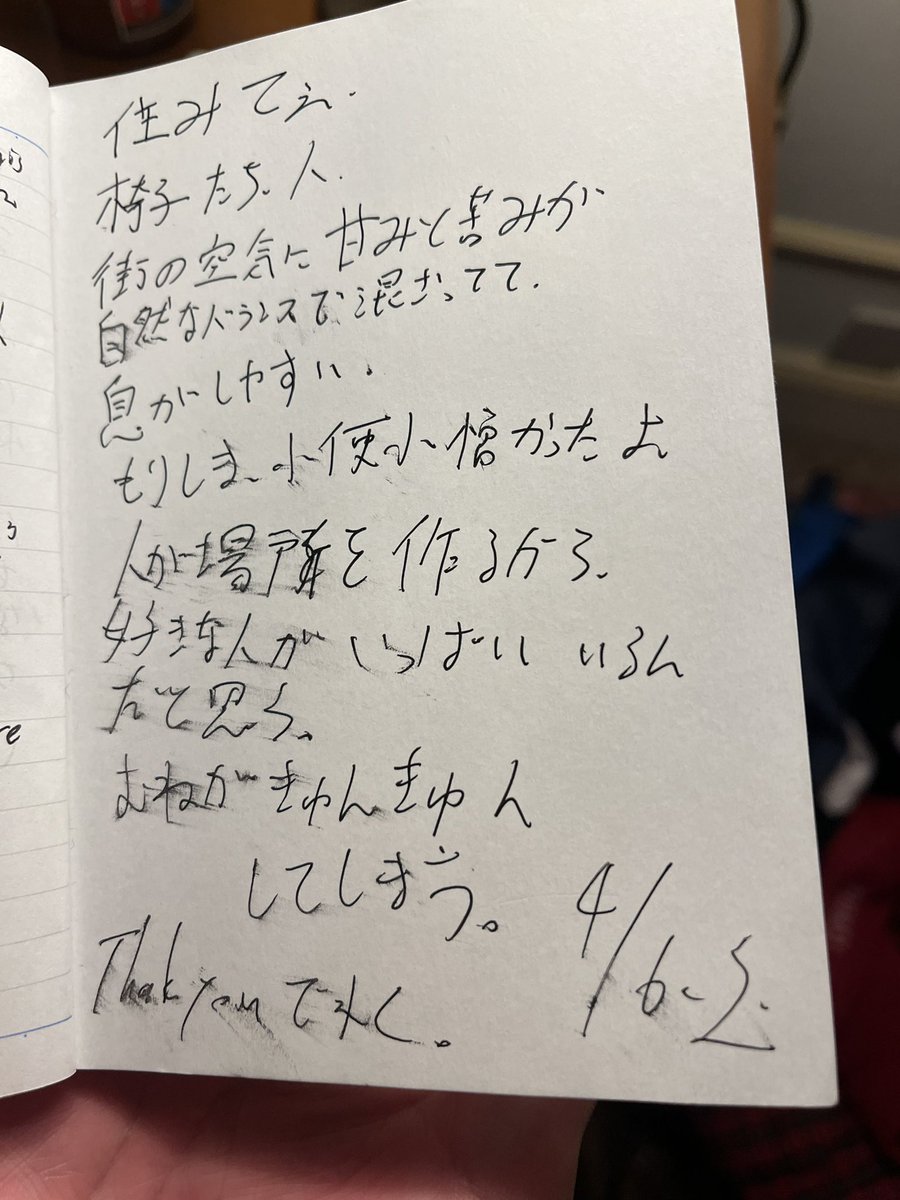 住みてぇ.
椅子たち、人.
街の空気に甘みと苦みが
自然なバランスで混ざってて.
息がしやすい.
もりしま、小便小憎かったよ
人が場所を作るから、
好きな人がいっぱいいるん
だと思う。
むねがきゅんきゅん
してしまう。
4/6
Thank you でれく。